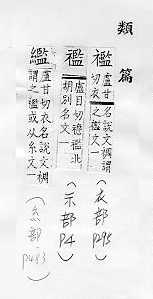 類篇
襤
盧甘切衣名說文襉謂之襤文一
(衣部 P295)
襤
盧目切襤䘿北胡別名文一
(示部 P4)
繿
盧甘切衣名說文襉謂之襤或从糸文一
(糸部 P483)